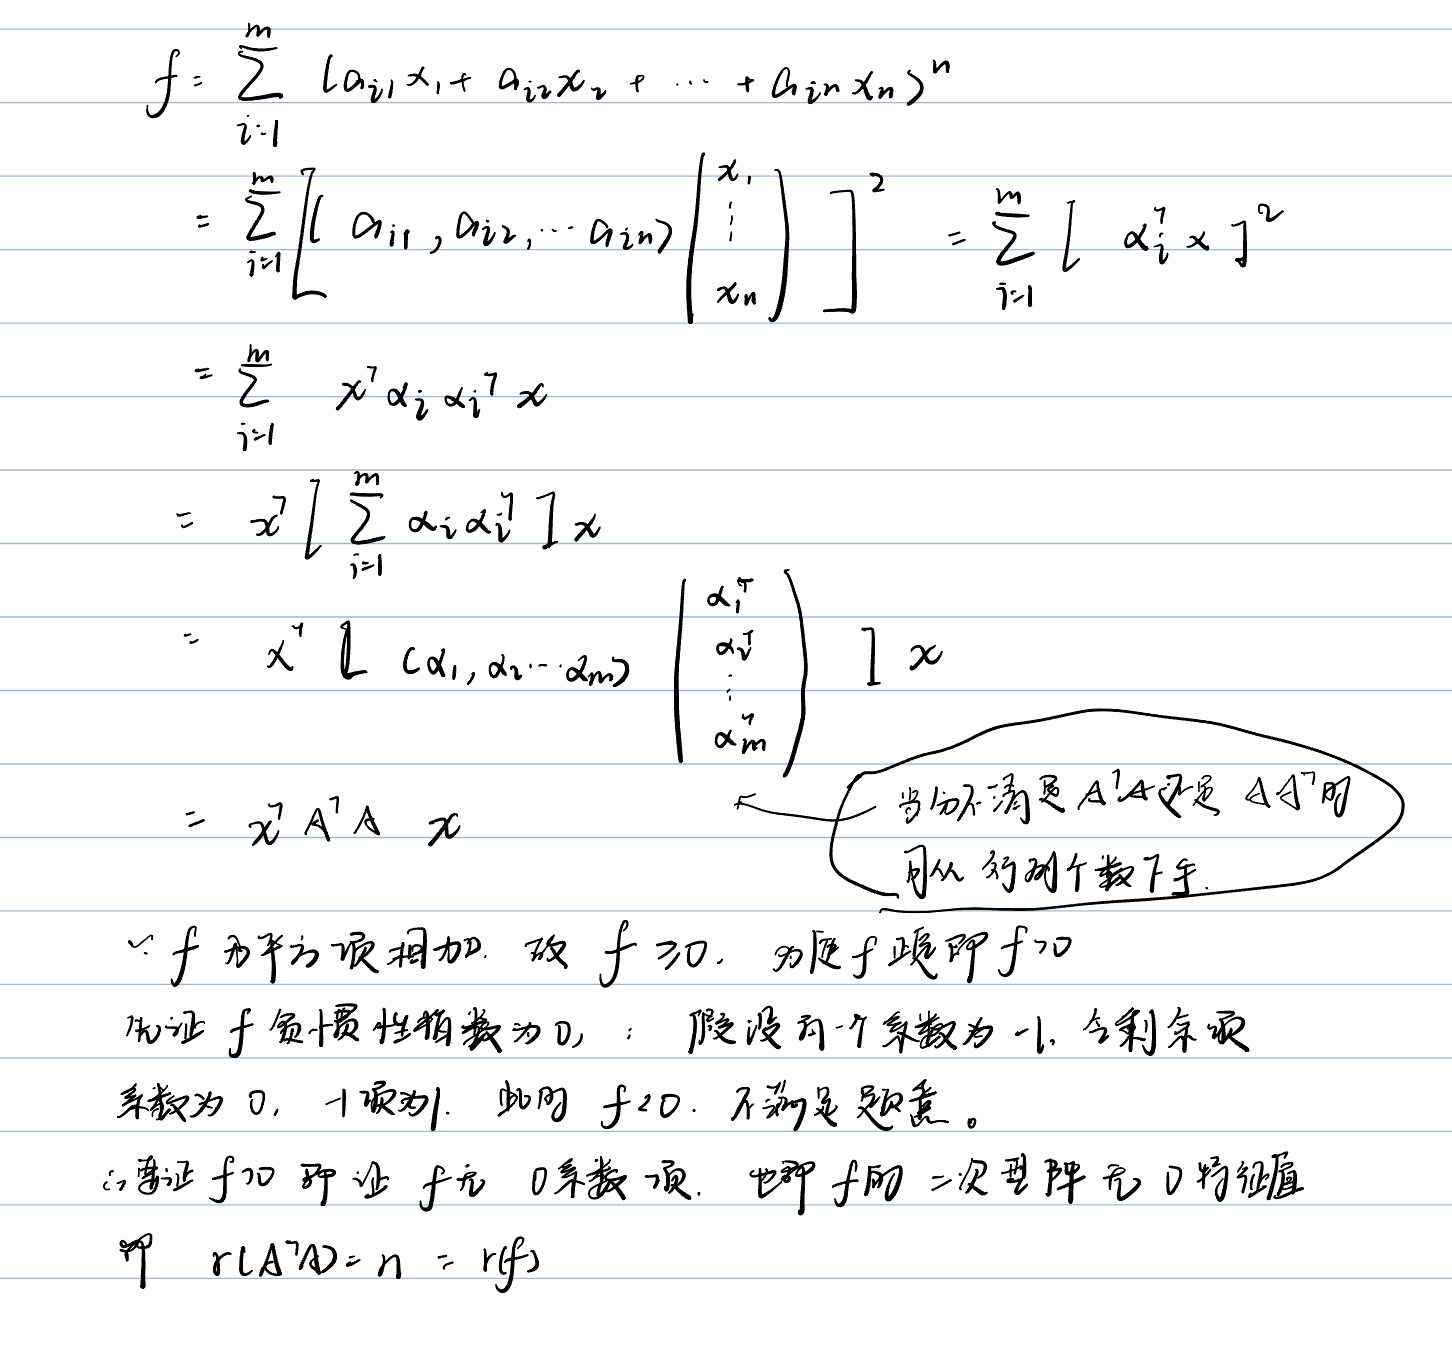 f = ∑_{i=1}^{m} (a_{i1}x_1 + a_{i2}x_2 + ⋯ + a_{in}x_n)^n
= ∑_{i=1}^{m} [(a_{i1}, a_{i2}, ⋯ a_{in}) (x_1 ⋮ x_n)]^2 = ∑_{i=1}^{m} [α_i^T x]^2
= ∑_{i=1}^{m} x^T α_i α_i^T x
= x^T [∑_{i=1}^{m} α_i α_i^T] x
= x^T [(α_1, α_2 ⋯ α_m) (α_1^T α_2^T ⋮ α_m^T)] x
= x^T A^T A x
当分不清是 A^T A 还是 A A^T 时
可从 行列个数下手.
∵ f 为平方项相加. 故 f ≥ 0. 为使 f 正定即 f>0
先证 f 负惯性指数为0, : 假设有一个系数为 -1. 令剩余项
系数为 0, -1项为1. 此时 f<0. 不满足题意。
∴ 要证 f>0 即证 f无 0系数项. 也即 f的 二次型阵无 0特征值
即 r(A^T A) = n = r(f)